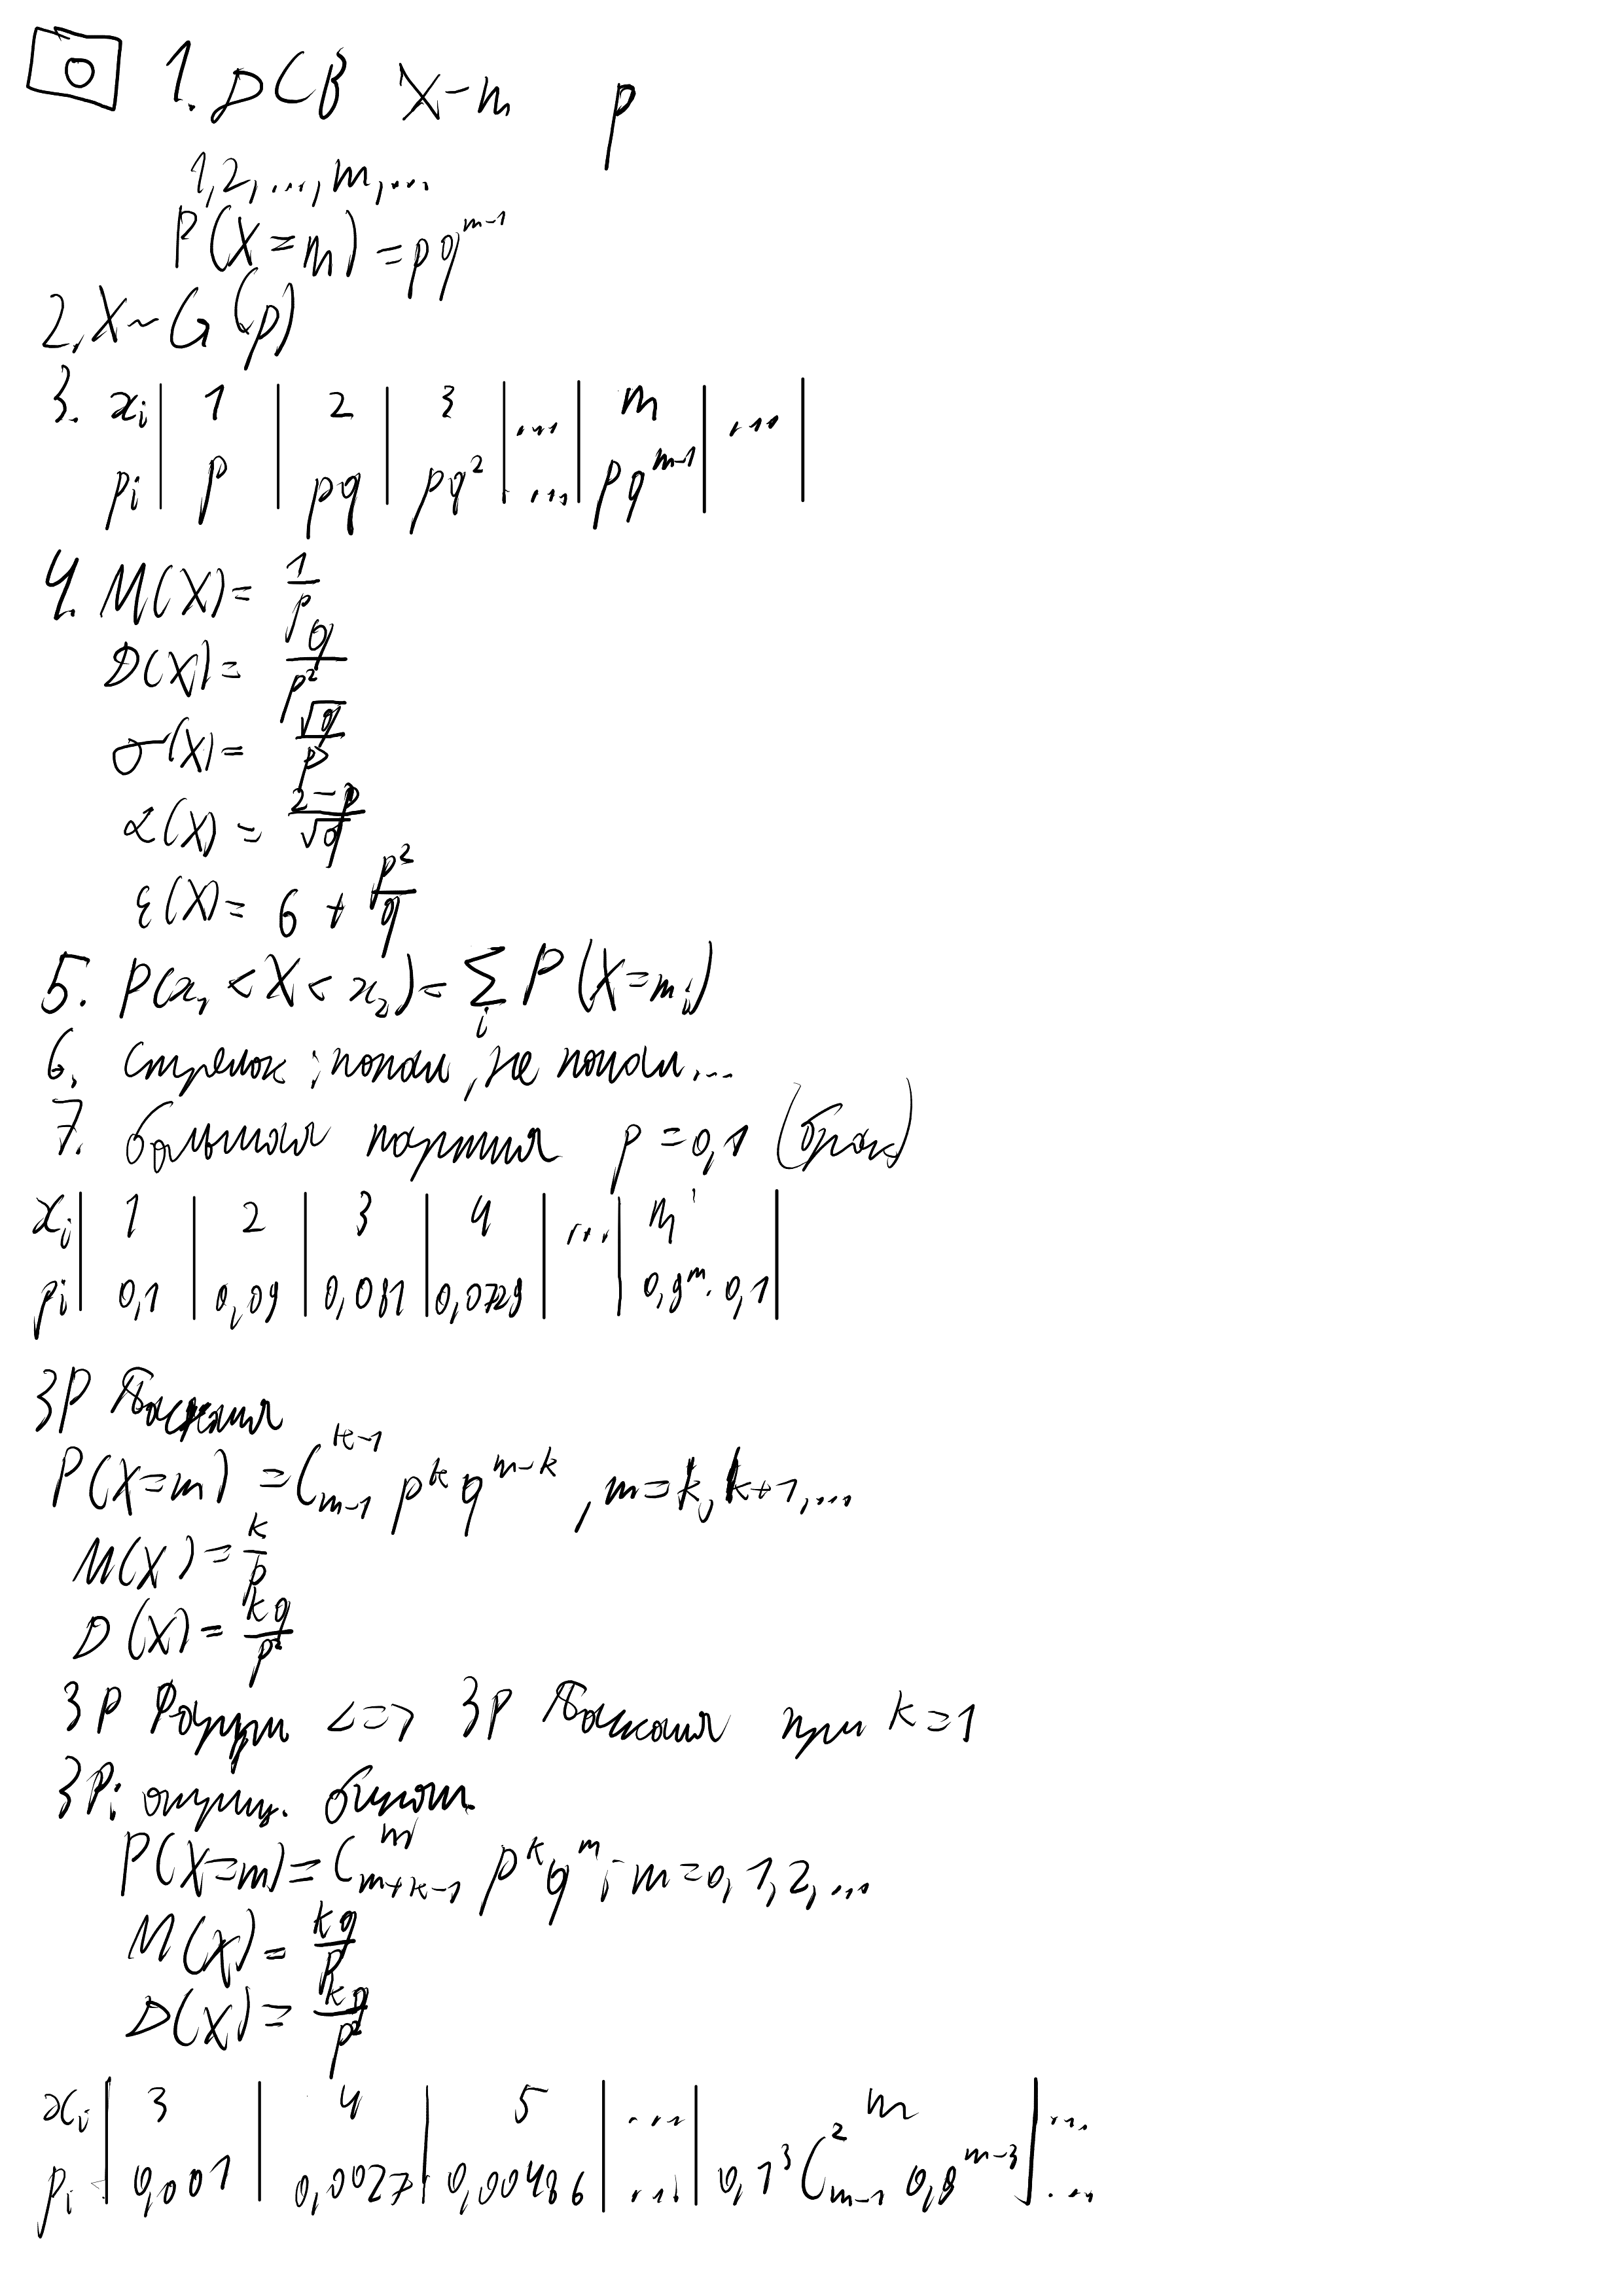 1. ДСВ X-m p
1,2,...,m,...
P(X=m)=pq^{m-1}
2. X~G(p)
3. x_i | 1 | 2 | 3 | ... | m | ... |
p_i | p | pq | pq^2 | ... | pq^{m-1} |
4. M(X)= 1/p
D(X)= q/p^2
σ(X)= √q/p
α(X)= 2-p/√q
ε(X)= 6 + p^2/q
5. P(x_1 < X < x_2)= ∑_i P(X=m_i)
6. Стрелок; попал, не попал...
7. большая партия p=0,1 (брак)
x_i | 1 | 2 | 3 | 4 | ... | m |
p_i | 0,1 | 0,09 | 0,081 | 0,0729 | 0,9^m · 0,1 |
ЗР Паскаля
P(X=m) = C_{m-1}^{k-1} p^k q^{m-k}, m=k, k+1,...
M(X)= k/p
D(X)= kq/p^2
ЗР Фарри <=> ЗР Паскаля при k=1
ЗР: отриц. бином.
P(X=m)=C_{m+k-1}^m p^k q^m; m=0,1,2,...
M(X)= kq/p
D(X)= kq/p^2
x_i | 3 | 4 | 5 | ... | m | ...
p_i | 0,001 | 0,0027 | 0,00486 | ... | 0,1^3 C_{m-1}^2 0,9^{m-3} | ...